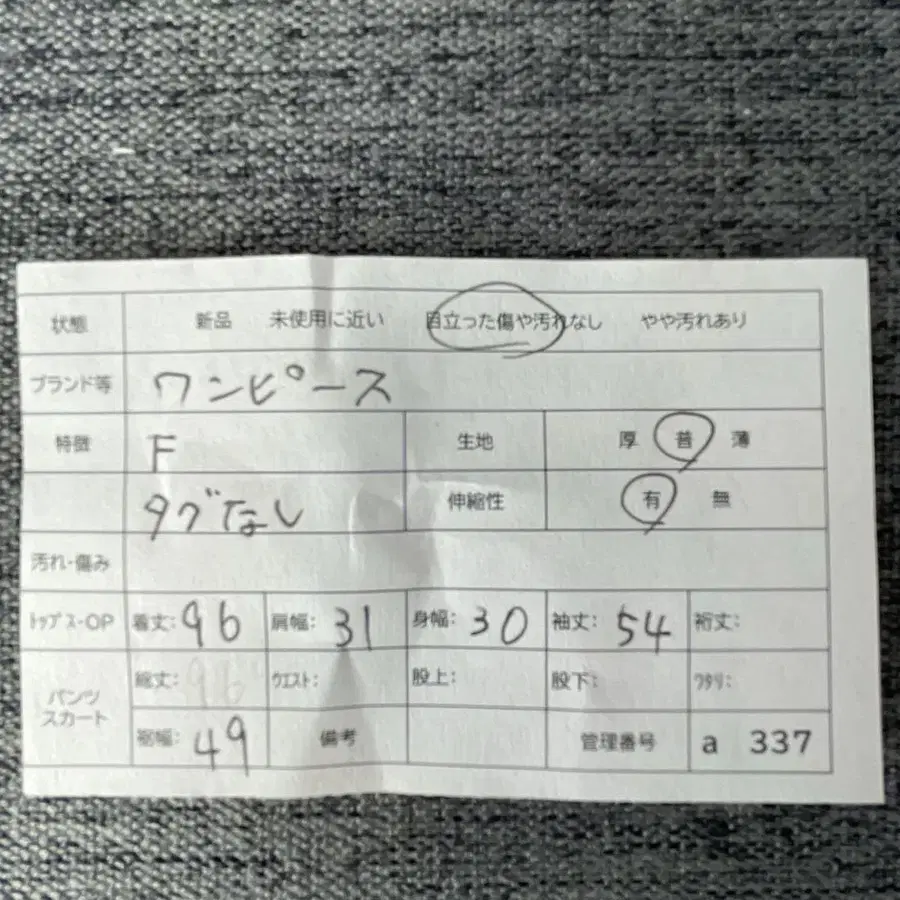 状態 新品 未使用に近い 目立った傷や汚れなし やや汚れあり
ブランド等 ワンピース
特徴 F 生地 厚 普 薄
タグなし 伸縮性 有 無
汚れ・傷み
トップス・OP 着丈: 96 肩幅: 31 身幅: 30 袖丈: 54 裄丈:
パンツ スカート 総丈: 96 ウエスト: 股上: 股下: ワタリ:
裾幅: 49 備考 管理番号 a 337